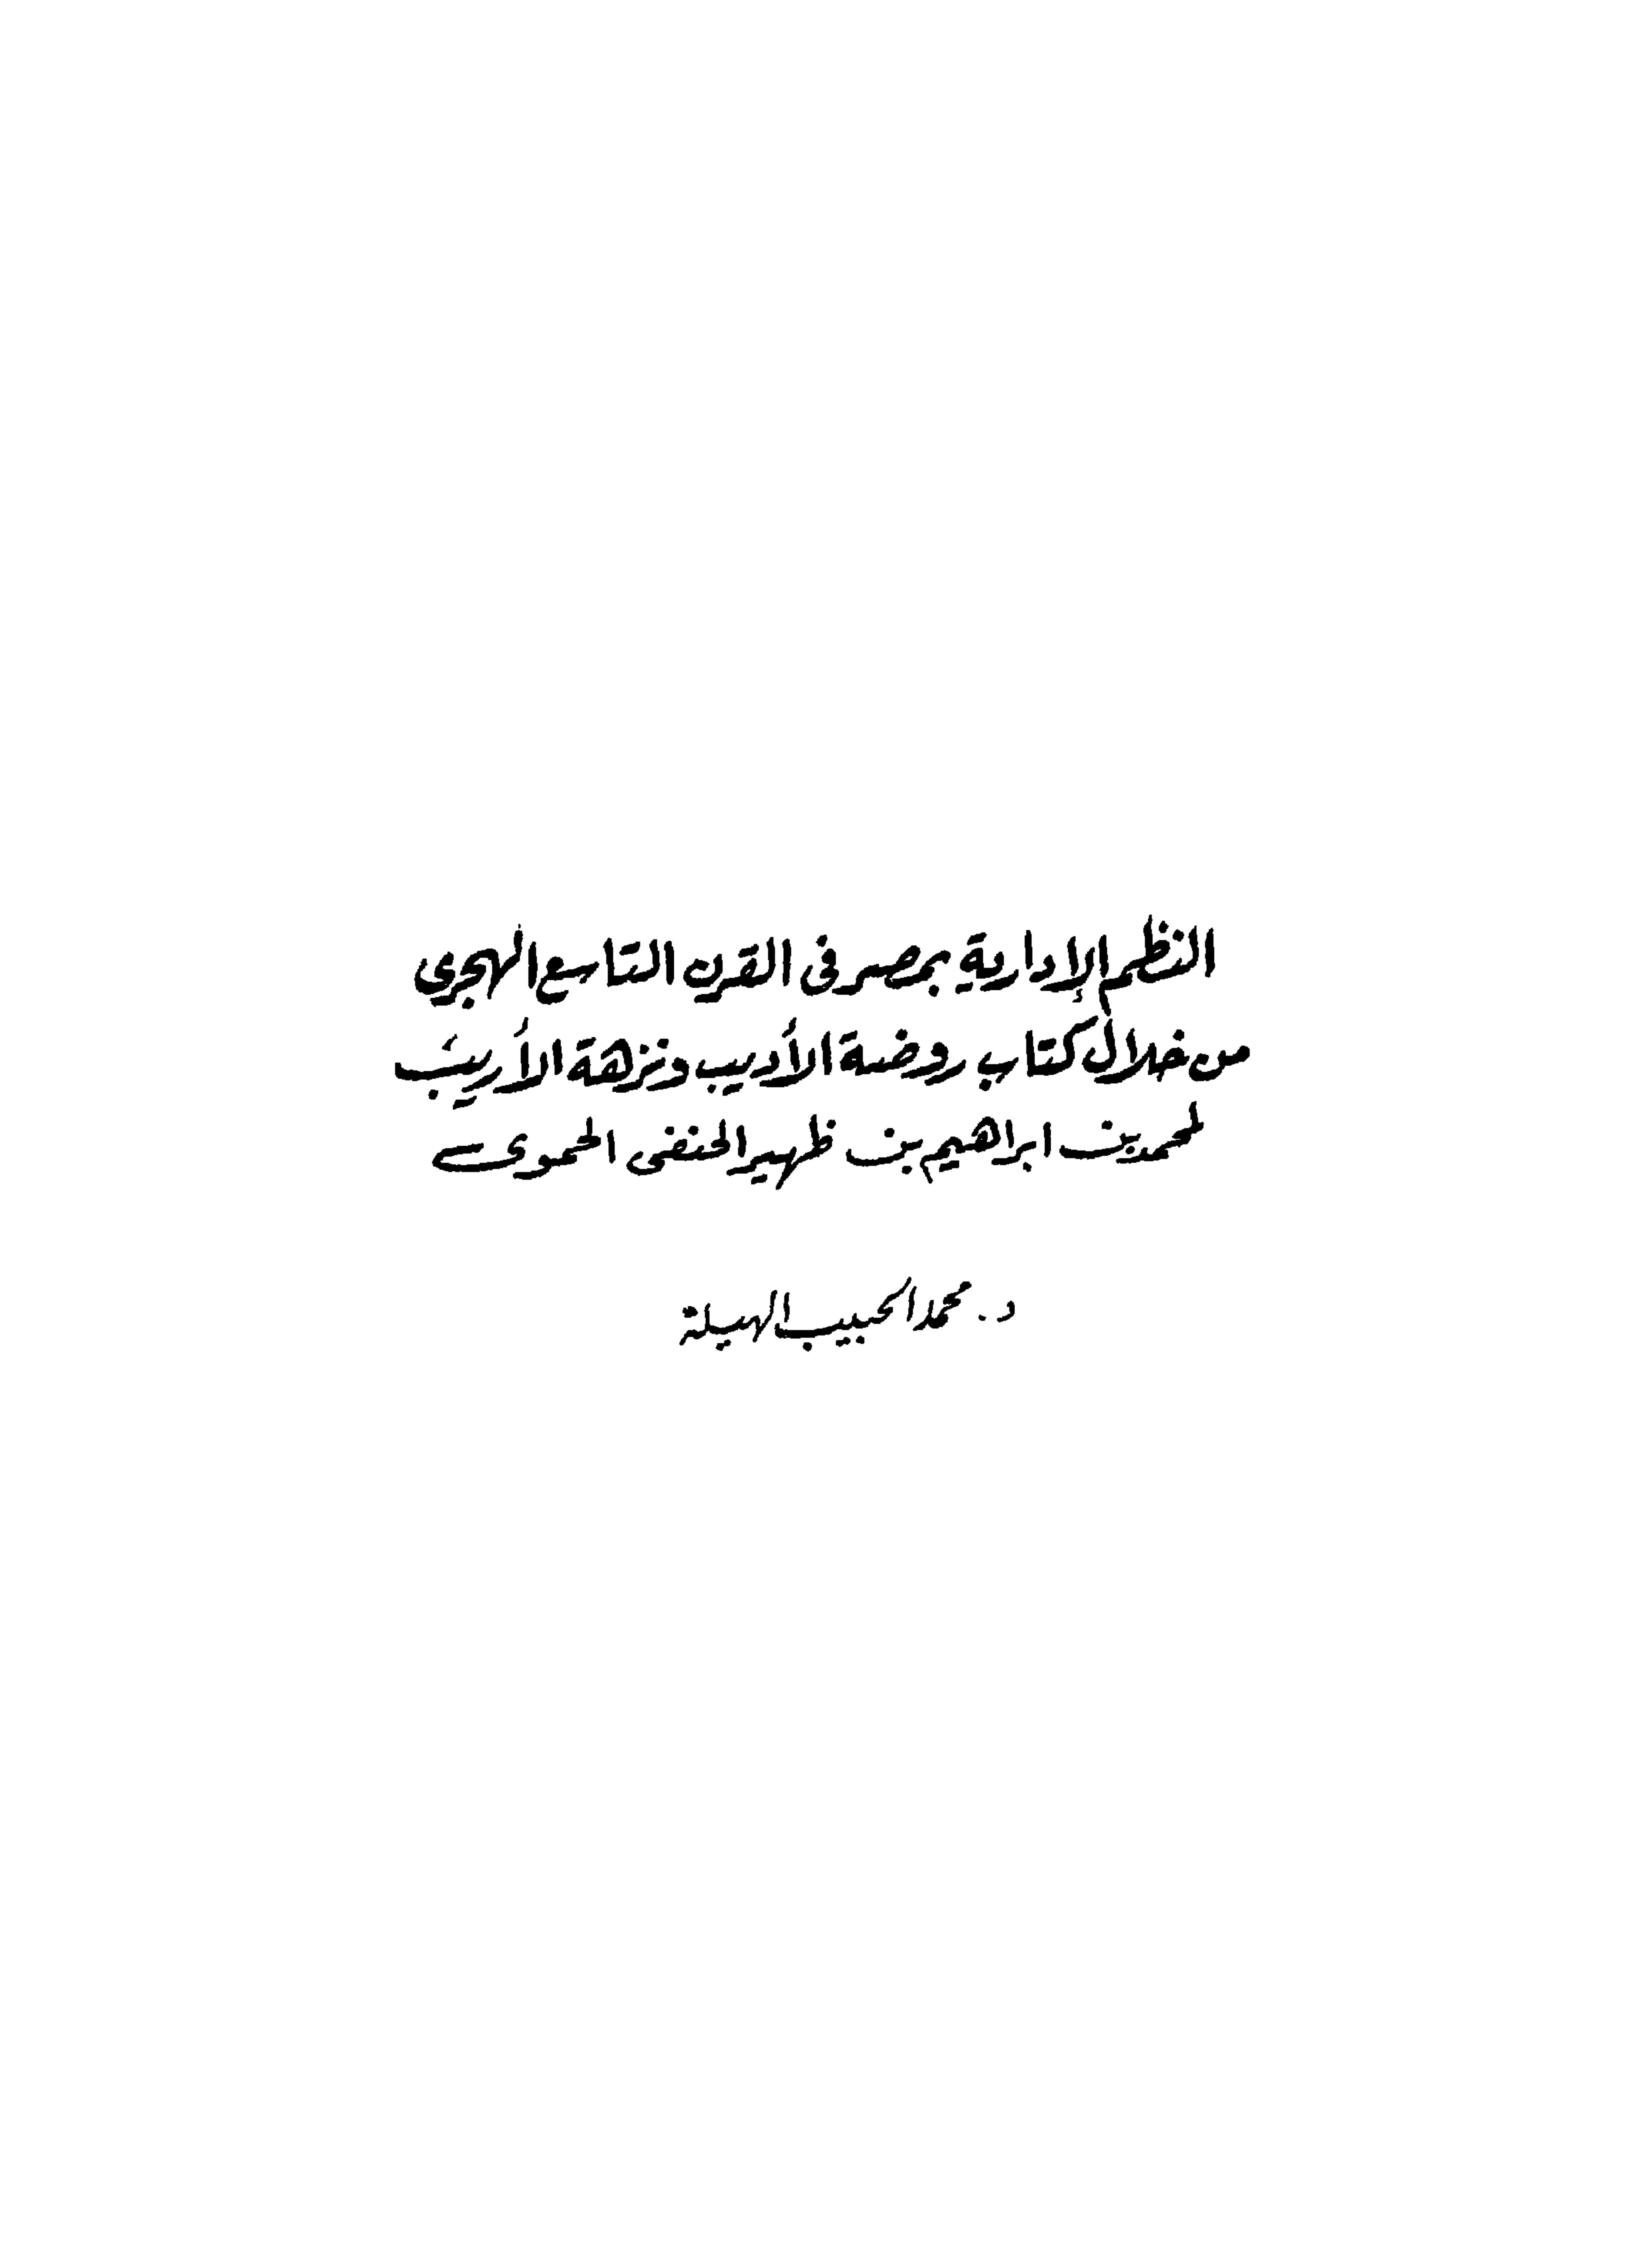 النظم الإدارية بمصر فى القرن التاسع الهجري
من خلال كتاب روضة الأديب ونزهة الأريب
لمحمد بن ابراهيم بن ظهير الحنفى الحموى
د. محمد الحبيب الهيلة